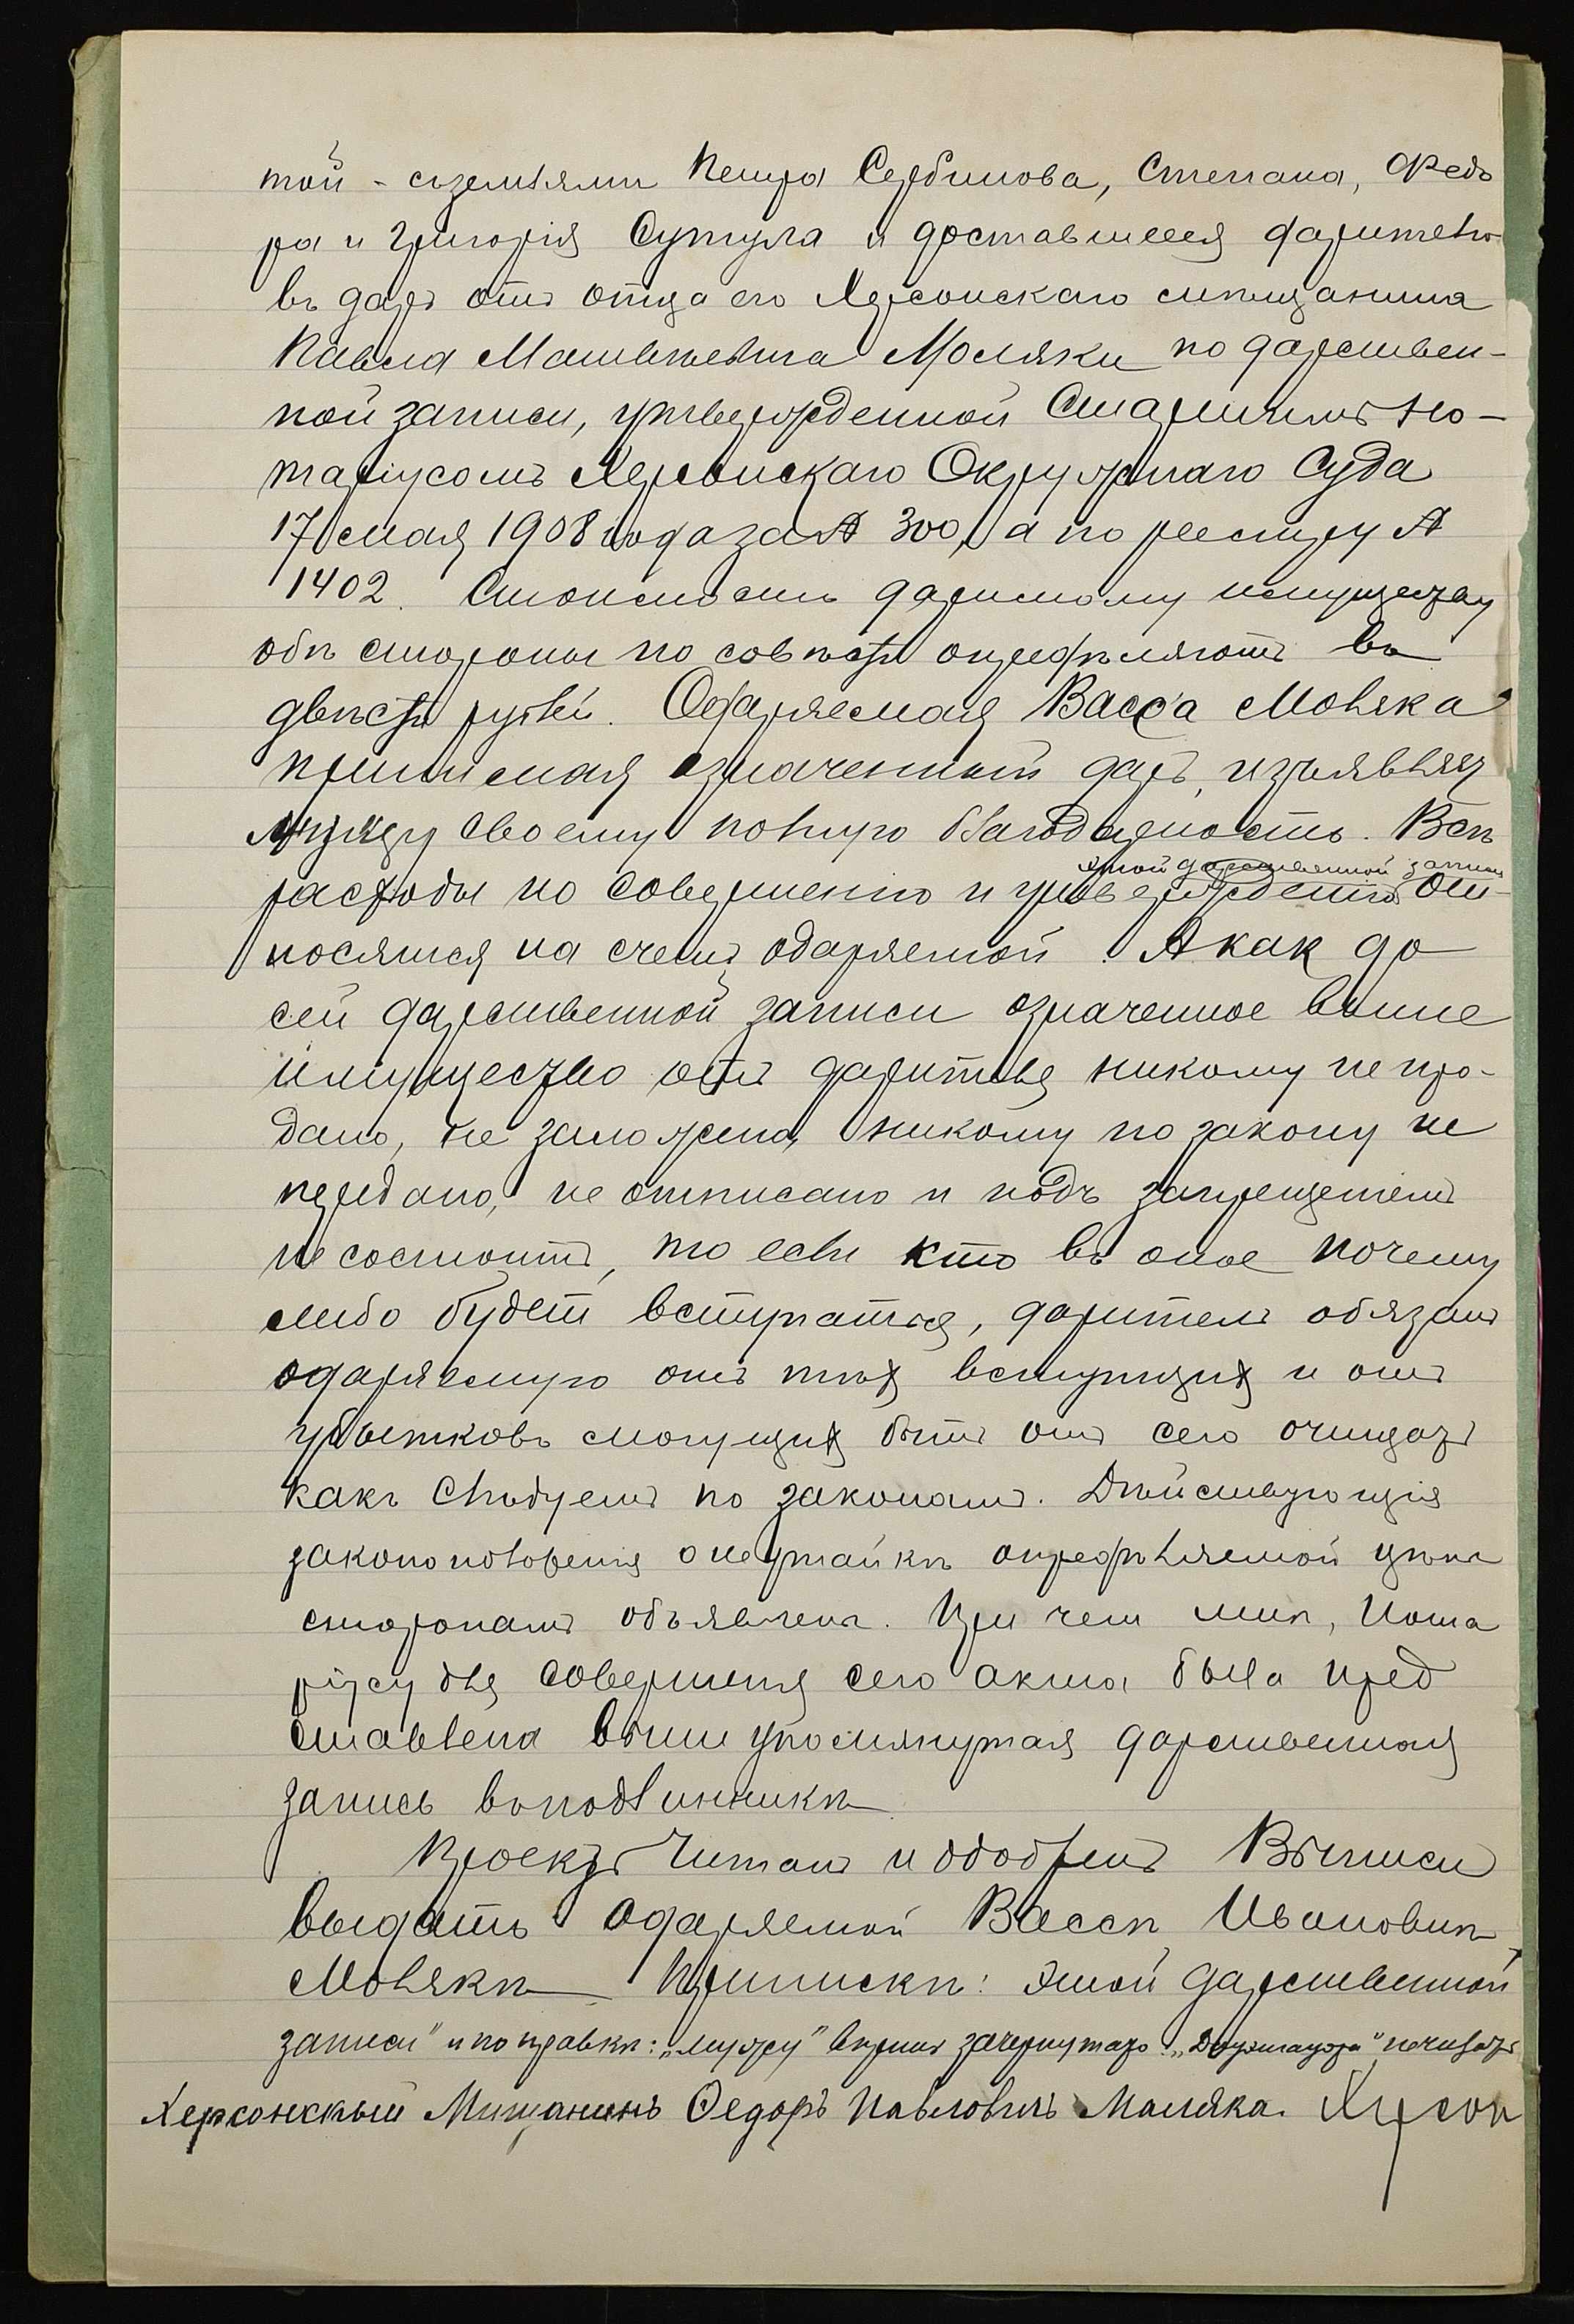 той - съ землями Петра Сербинова, Степана, Федо
ра и Григорія Сутула и доставшееся дарителю
въ даръ отъ отца его Херсонскаго мѣщанина
Павла Матвѣевича Моляки по дарствен-
ной записи, утвержденной Старшимъ Но-
таріусомъ Херсонскаго Окружнаго Суда
17 мая 1908 года за № 300, а по реестру №
1402. Стоимость даримому имуществу
обѣ стороны по совѣсти опредѣляютъ въ
двѣсти рублей. Одаряемая Васса Моляка
принимая означенный даръ, изъявляя
мужу своему полную благодарность. Всѣ
расходы по совершенію и утвержденію этой дарственной записи от-
носятся на счетъ одаряемой. А как до
сей дарственной записи означенное выше
имущество отъ дарителя никому не про-
дано, не заложено, никому по закону не
передано, не отписано и подъ запрещеніемъ
не состоитъ, то если кто въ оное почему
либо будетъ вступаться, даритель обязанъ
одаряемую отъ тѣхъ вступщих и отъ
убытковъ могущих быть отъ сего очищать
какъ слѣдуетъ по законамъ. Дѣйствующія
законоположенія о неутайкѣ опредѣляемой цѣны
сторонамъ объявлены. При чем мнѣ, Нота
ріусу для совершенія сего акта была пред
ставлена выше упомянутая дарственная
запись въ подлинникѣ.
Проектъ читанъ и одобренъ Выписи
выдать одаряемой Вассѣ Ивановнѣ
Молякѣ Припискѣ: этой дарственной
записи" и поправкѣ: "мужу" вѣрить зачеркнутаго: " не читать
Херсонскый Мищанинъ Ѳедоръ Павловичъ Маляка. Херсон